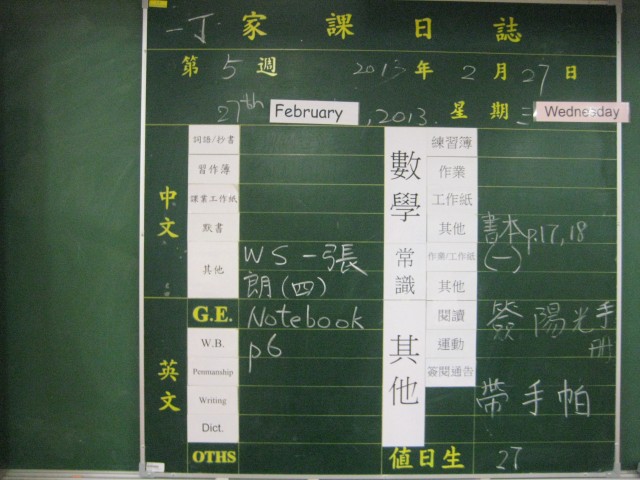 一丁 家課日誌
第 5 週 2013 年 2 月 27 日
27th February, 2013. 星期三 Wednesday
中文
詞語/抄書
習作簿
課業工作紙
默書
其他 WS一張
朗(四)
英文
G.E. Notebook
W.B. p6
Penmanship
Writing
Dict.
OTHS
數學
練習簿
作業
工作紙
其他 書本p.17,18
常識
作業/工作紙 (一)
其他
其他
閱讀 簽陽光手
冊
運動
簽閱通告
帶手帕
值日生 27